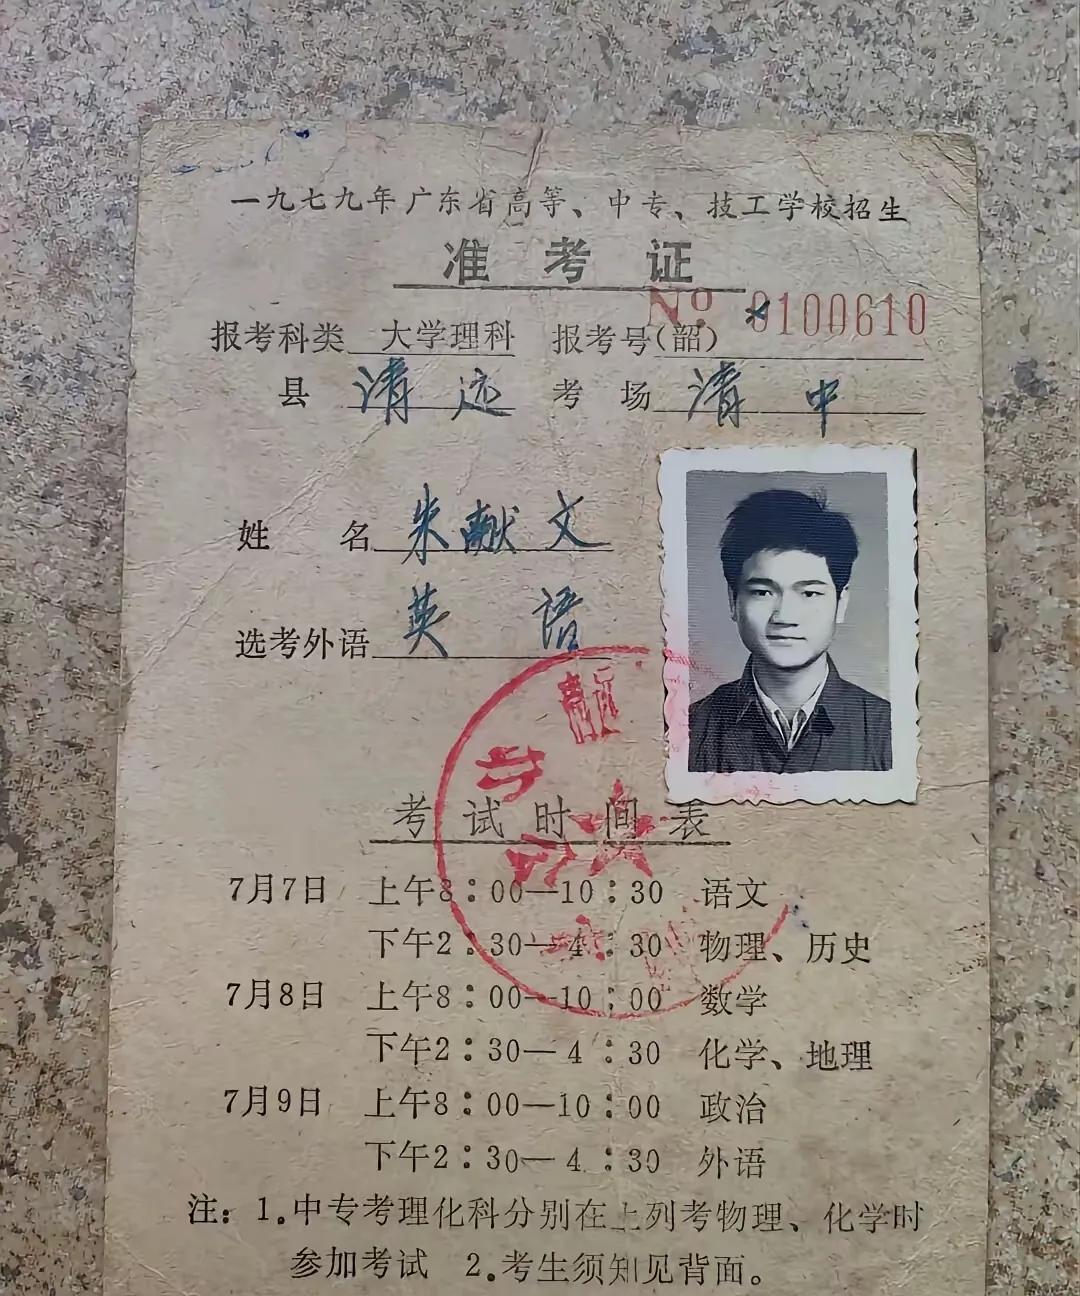 一九七九年广东省高等、中专、技工学校招生
准考证
报考科类 大学理科 报考号(韶) № 0100610
县 清远 考场 清中
姓名 朱献文
选考外语 英语
考试时间表
7月7日 上午8:00—10:30 语文
下午2:30—4:30 物理、历史
7月8日 上午8:00—10:00 数学
下午2:30—4:30 化学、地理
7月9日 上午8:00—10:00 政治
下午2:30—4:30 外语
注：1.中专考理化科分别在上列考物理、化学时
参加考试 2.考生须知见背面。